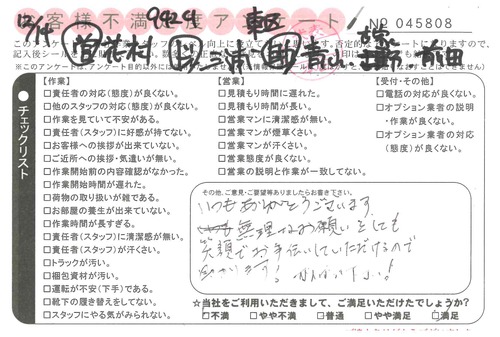 お客様不満足度アンケート
No 045808
12/14
9424
【作業】
□責任者の対応(態度)が良くない。
□他のスタッフの対応(態度)が良くない。
□作業を見ていて不安がある。
□責任者(スタッフ)に好感が持てない。
□お客様への挨拶が出来ていない。
□ご近所への挨拶・気遣いが無い。
□作業開始前の内容確認がなかった。
□作業開始時間が遅れた。
□荷物の取り扱いが雑である。
□お部屋の養生が出来ていない。
□作業時間が長すぎる。
□責任者(スタッフ)に清潔感が無い。
□責任者(スタッフ)が汗くさい。
□トラックが汚い。
□梱包資材が汚い。
□運転が不安(下手)である。
□靴下の履き替えをしてない。
□スタッフにやる気がみられない。
【営業】
□見積もり時間に遅れた。
□見積もり時間が長い。
□営業マンに清潔感が無い。
□営業マンが煙草くさい。
□営業マンが汗くさい。
□営業態度が良くない。
□営業の説明と作業が一致してない。
【受付・その他】
□電話の対応が良くない。
□オプション業者の説明
・作業が良くない。
□オプション業者の対応
(態度)が良くない。
チェックリスト
その他、ご意見・ご要望等ありましたらお書き下さい。
いつもありがとうございます
無理なお願いをしても
笑顔でお手伝いしていただけるので
助かります!
☆当社をご利用いただきまして、ご満足いただけたでしょうか?
□不満 □やや不満 □普通 □やや満足 □満足